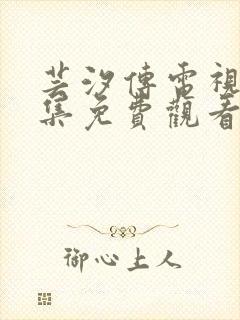 芸汐傳電視
集免費觀看
御心上人